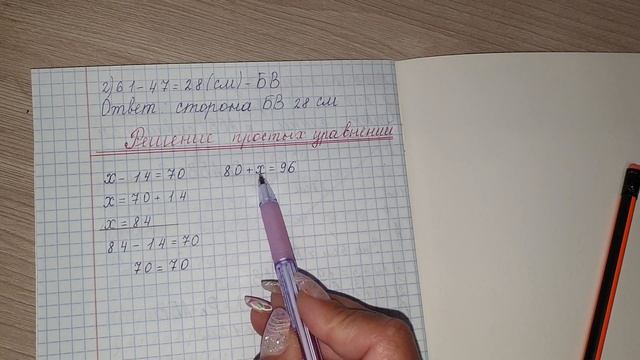 2) 61 - 47 = 28 (см) - БВ
Ответ сторона БВ 28 см
Решение простых уравнений
x - 14 = 70
x = 70 + 14
x = 84
84 - 14 = 70
70 = 70
80 + x = 96